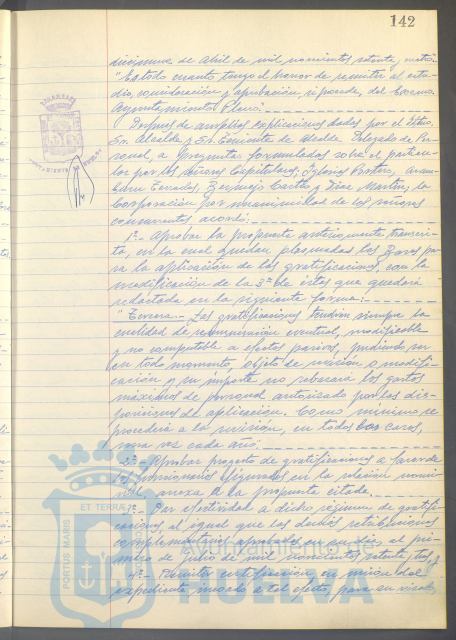 142
diecinueve de Abril de mil novecientos setenta y cuatro.-
"Es todo cuanto tengo el honor de someter al estu-
dio, consideración y aprobación, si procede, del Excmo.
Ayuntamiento Pleno".
Después de amplias explicaciones dadas por el Iltmo.
Sr. Alcalde y Sr. Teniente de Alcalde Delegado de Per-
sonal, a preguntas formuladas sobre el particu-
lar por los señores Capitulares,
Castro y Díaz Martín, la
Corporación por unanimidad de los señores
concurrentes acordó:
1º.- Aprobar la propuesta anteriormente transcri-
ta, en la cual quedan plasmadas las Bases pa-
ra la aplicación de las gratificaciones, con la
modificación de la 3ª de éstas que quedará
redactada en la siguiente forma:
"Tercera.- Las gratificaciones tendrán siempre la
cualidad de remuneración eventual, modificable
y no computable a efectos pasivos, pudiendo ser
en todo momento, objeto de revisión o modifi-
cación y su importe no rebasará los gastos
máximos de personal autorizado por las dis-
posiciones de aplicación. Como mínimo se
procederá a la revisión, en todos los casos,
una vez cada año.
2º.- Aprobar proyecto de gratificaciones a favor de
los funcionarios figurados en la relación nomi-
nal anexa a la propuesta citada.
3º.- Dar efectividad a dicho régimen de gratifi-
caciones, al igual que los demás retribuciones
complementarias aprobadas en su día, al pri-
mero de julio de mil novecientos setenta y tres, y
4º.- Remitir certificación en unión del
expediente incoado a tal efecto, para su visado
PORTUS MARIS ET TERRAE
Ayuntamiento de
HUELVA